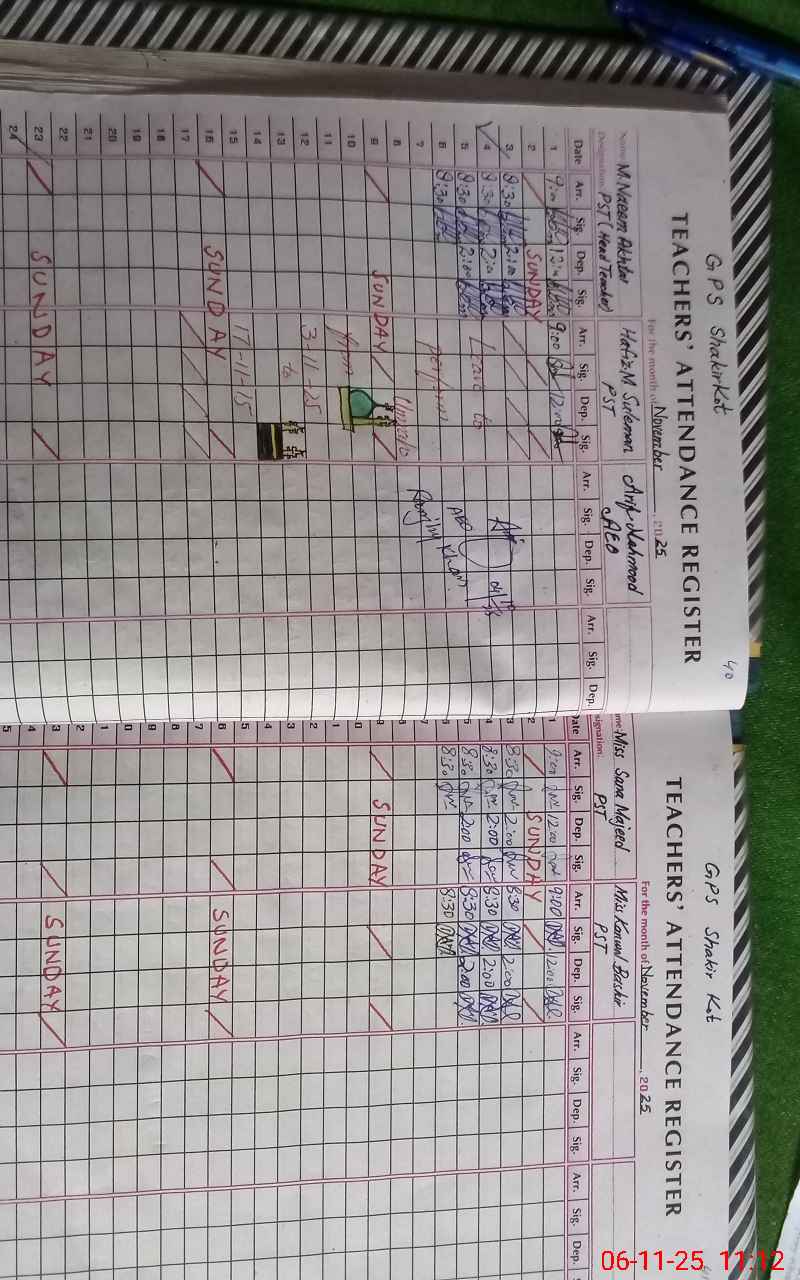 GPS ShakirKot
40
TEACHERS' ATTENDANCE REGISTER
For the month of November 2025
Name M. Naeem Akhtar Hafiz M Suleman Arif Mahmood
Designation: PST (Head Teacher) PST AEO
Date Arr. Sig. Dep. Sig. Arr. Sig. Dep. Sig. Arr. Sig. Dep. Sig. Arr. Sig. Dep.
1 9:00 12:00 9:00 12:00
2 SUNDAY
3 8:30 2:00
4 8:30 2:00 Leave to
5 8:30 2:00
6 8:30 perform
7 Umrah
8
9 SUNDAY
10 from
11
12 3-11-25
13 to
14
15 17-11-25
16 SUNDAY
17
18
19
20
21
22
23 SUNDAY
24
AEO
GPS Shakir Kot
TEACHERS' ATTENDANCE REGISTER
For the month of November 2025
Miss Sana Majeed Miss Kanwal Bashir
Designation: PST PST
Date Arr. Sig. Dep. Sig. Arr. Sig. Dep. Sig. Arr. Sig. Dep. Sig. Arr. Sig. Dep.
1 9:00 12:00 9:00 12:00
2 SUNDAY
3 8:30 2:00 8:30 2:00
4 8:30 2:00 8:30 2:00
5 8:30 2:00 8:30 2:00
6 8:30 8:30
SUNDAY
SUNDAY SUNDAY
06-11-25 11:12